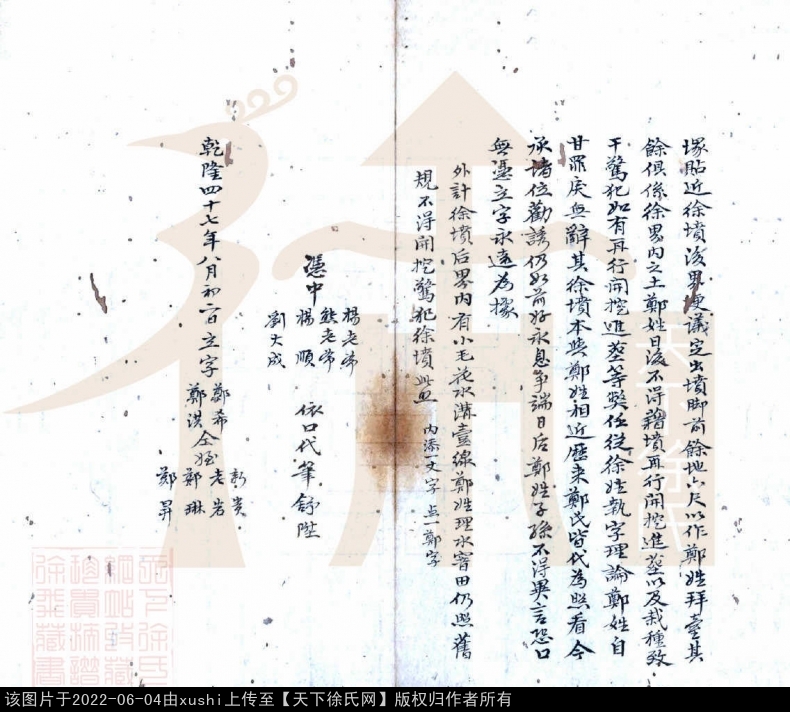 塚貼近徐墳後界更議定出墳脚前餘地六尺以作鄭姓拜臺其
餘俱係徐界内之土鄭姓日後不得藉墳再行開挖進塟以及栽種致
干驚犯如有再行開挖進塟等獘任從徐姓執字理論鄭姓自
甘罪戾無辭其徐墳本與鄭姓相近歷来鄭氏皆代為照看今
承堵位勸諉仍如前好永息争端日后鄭姓子孫不得異言恐口
無憑立字永遠為據
外計徐墳后界内有小毛花水溝壹線鄭姓理水霄田仍照舊
規不得開挖驚犯徐墳此照
内添一文字 点一鄭字
憑中
楊老常
熊老常
楊順
劉大成
依口代筆 舒陞
乾隆四十七年八月初二日立字
鄭希
鄭洪仝姪
新贵
老岩
鄭琳
鄭昇
天下徐氏
该图片于2022-06-04由xushi上传至【天下徐氏网】版权归作者所有